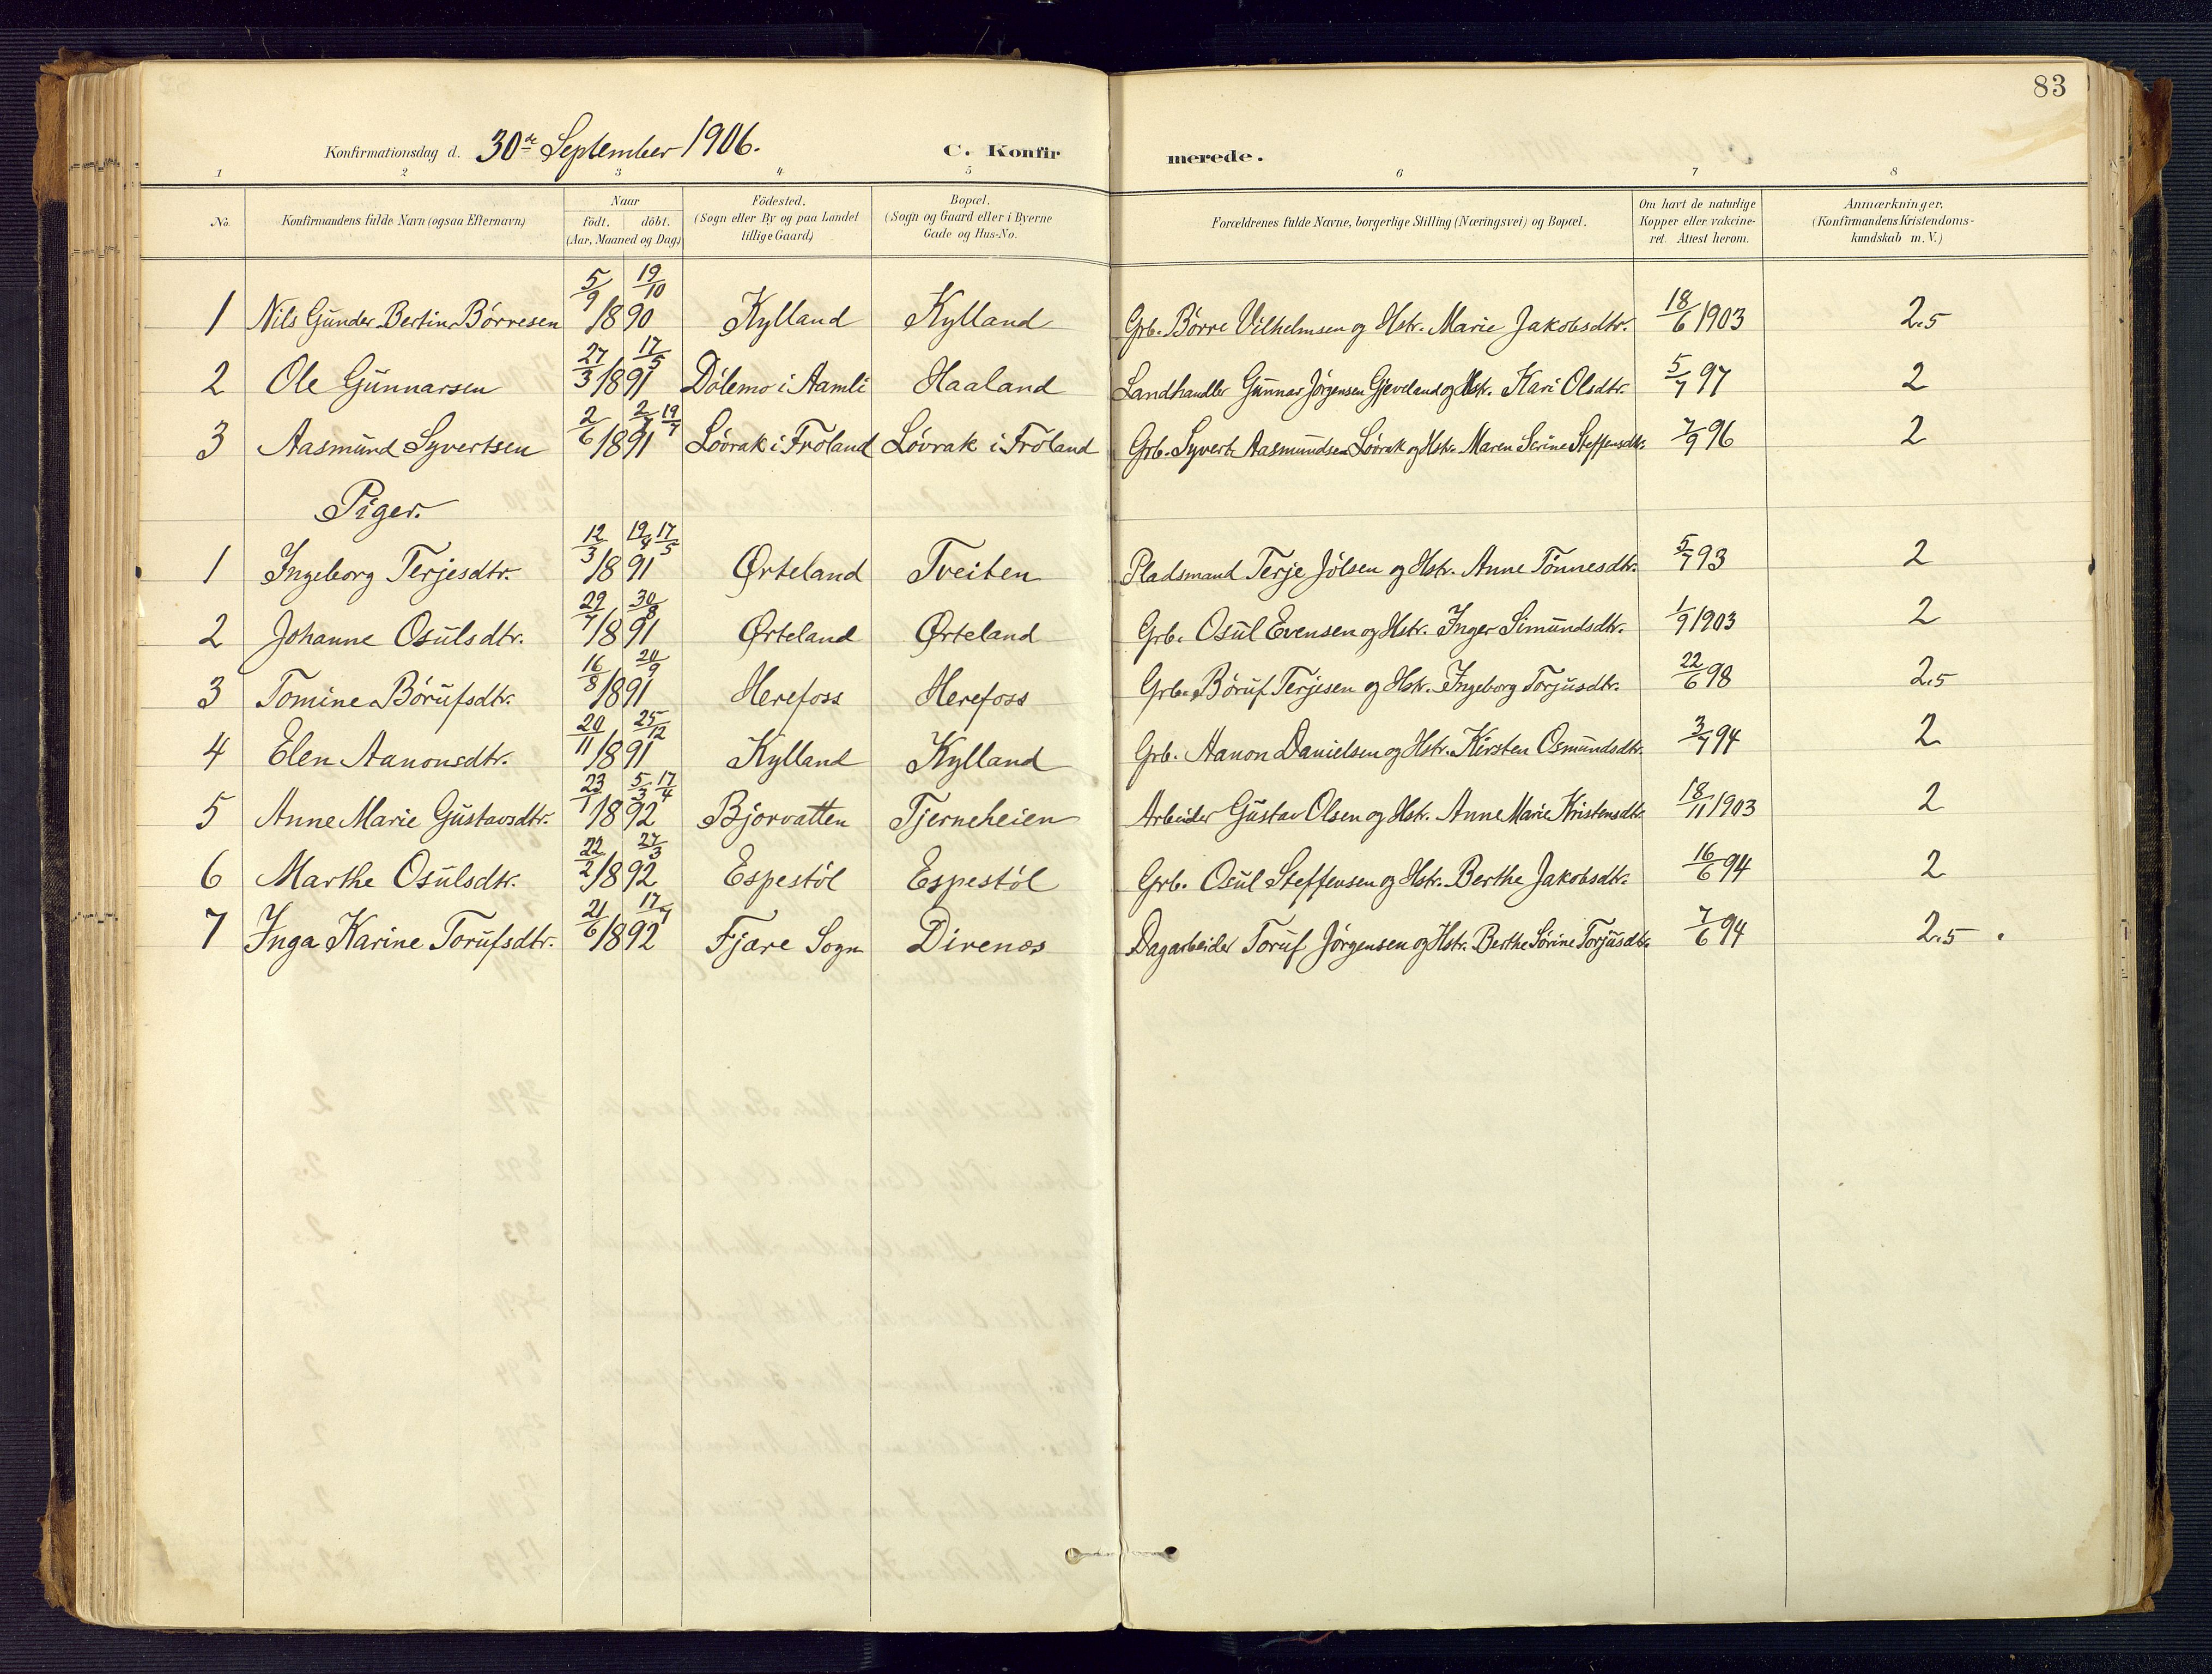 83
Konfirmationsdag d. 30de September 1906. C. Konfirmerede.
1 2 3 4 5 6 7 8
No. Konfirmandens fulde Navn (ogsaa Efternavn) Naar födt. döbt. (Aar, Maaned og Dag) Födested. (Sogn eller By og paa Landet tillige Gaard) Bopæl. (Sogn og Gaard eller i Byerne Gade og Hus-No. Forældrenes fulde Navne, borgerlige Stilling (Næringsvei) og Bopæl. Om havt de naturlige Kopper eller vakcineret. Attest herom. Anmærkninger. (Konfirmandens Kristendomskundskab m. V.)
1 Nils Gunder Bertin Børresen 5/9 19/10 1890 Kylland Kylland Grb. Børre Vilhelmsen og Hstr. Marie Jakobsdtr. 18/6 1903 2.5
2 Ole Gunnarsen 27/3 17/5 1891 Dølemo i Aamli Haaland Landhandler Gunnar Jørgensen Gjeveland og Hstr. Kari Olsdtr. 5/7 97 2
3 Aasmund Syvertsen 2/6 2/7 19/7 1891 Løvrak i Froland Løvrak i Froland Grb. Syvert Aasmundsen Løvrak og Hstr. Maren Serine Steffensdtr. 7/9 96 2
Piger.
1 Ingeborg Terjesdtr. 12/3 19/4 17/5 1891 Ørteland Tveiten Pladsmand Terje Jølsen og Hstr. Anne Tønnesdtr. 5/7 93 2
2 Johanne Osulsdtr. 29/7 30/8 1891 Ørteland Ørteland Grb. Osul Evensen og Hstr. Inger Simundsdtr. 1/9 1903 2
3 Tomine Børufsdtr. 16/8 20/9 1891 Herefoss Herefoss Grb. Børuf Terjesen og Hstr. Ingeborg Torjusdtr. 22/6 98 2.5
4 Elen Aanonsdtr. 20/11 25/12 1891 Kylland Kylland Grb. Aanon Danielsen og Hstr. Kirsten Osmundsdtr. 3/7 94 2
5 Anne Marie Gustavsdtr. 23/1 5/3 17/4 1892 Bjorvatten Tjerneheien Arbeider Gustav Olsen og Hstr. Anne Marie Kristensdtr. 18/11 1903 2
6 Marthe Osulsdtr. 22/2 27/3 1892 Espestøl Espestøl Grb. Osul Steffensen og Hstr. Berthe Jakobsdtr. 16/6 94 2
7 Inga Karine Torufsdtr. 21/6 17/7 1892 Fjære Sogn Direnæs Dagarbeider Toruf Jørgensen og Hstr. Berthe Sørine Torjusdtr. 7/6 94 2.5